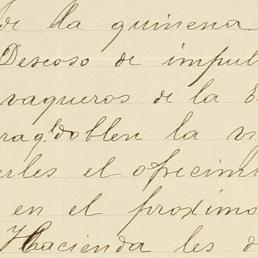 de la quincena
Deseoso de impul
vaqueros de la E
doblen la vi
rles el ofrecimi
en el proximo
Hacienda les d